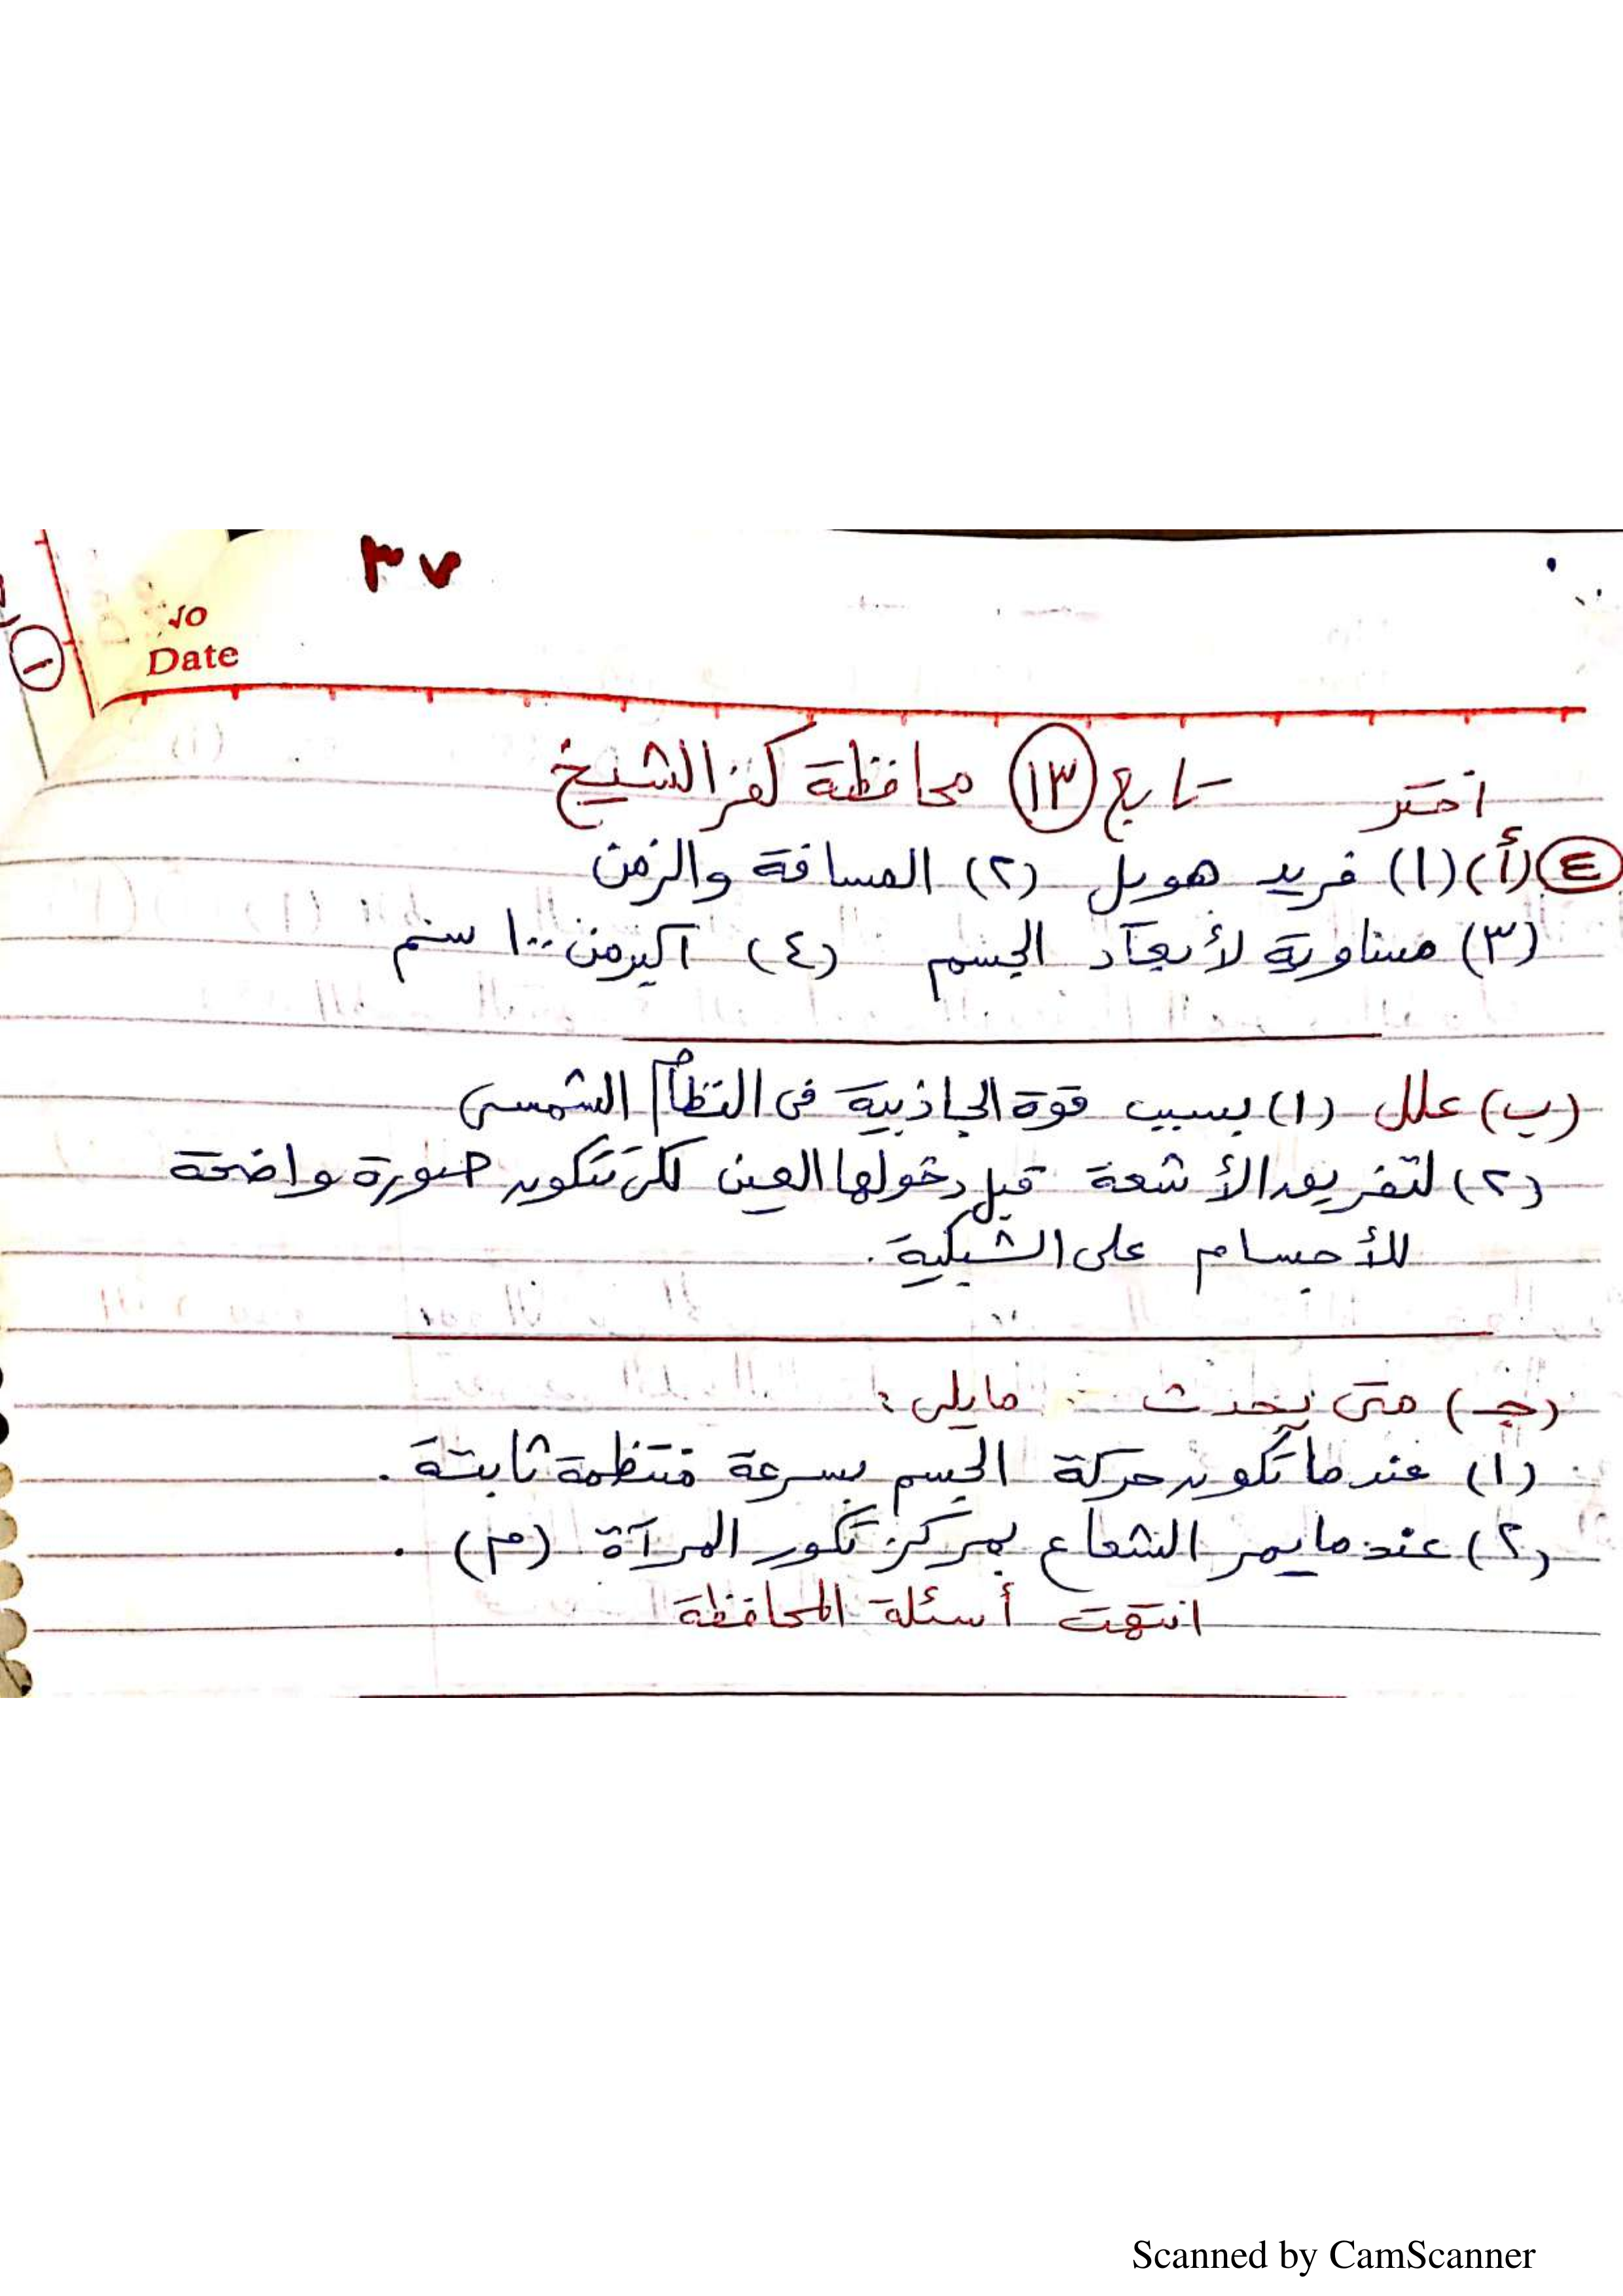 ٣٧
No
Date
١
اختر تابع ١٣ محافظة كفر الشيخ
٤ (أ) (١) فريد هويل (٢) المسافة والزمن
(٣) مساوية لأبعاد الجسم (٤) أكبر من ١٠٠ سنم
(ب) علل (١) بسبب قوة الجاذبية فى النظام الشمسى
(٢) لتفريق الأشعة قبل دخولها العين لكى تتكون صورة واضحة
للأجسام على الشبكية.
(جـ) متى يحدث مايلى:
(١) عندما تكون حركة الجسم بسرعة منتظمة ثابتة.
(٢) عندما يمر الشعاع بمركز تكور المرآة (م).
انتهت أسئلة المحافظة
Scanned by CamScanner